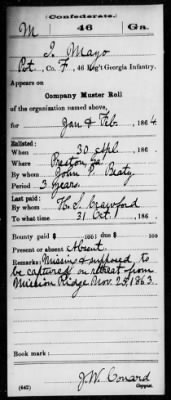 (Confederate.)
M 46 Ga.
J. Mayo
Pvt, Co. F, 46 Reg't Georgia Infantry.
Appears on
Company Muster Roll
of the organization named above,
for Jan & Feb, 1864.
Enlisted:
When 30 Apl, 186
Where Preston Ga
By whom John P. Beaty
Period 3 years
Last paid:
By whom H. S. Crawford
To what time 31 Oct, 186
Bounty paid $ 100; due $ 100
Present or absent Absent
Remarks: Missing & supposed to
be captured on retreat from
Mission Ridge Nov. 25, 1863.
Book mark:
(642) J. W. Conard
Copyist.